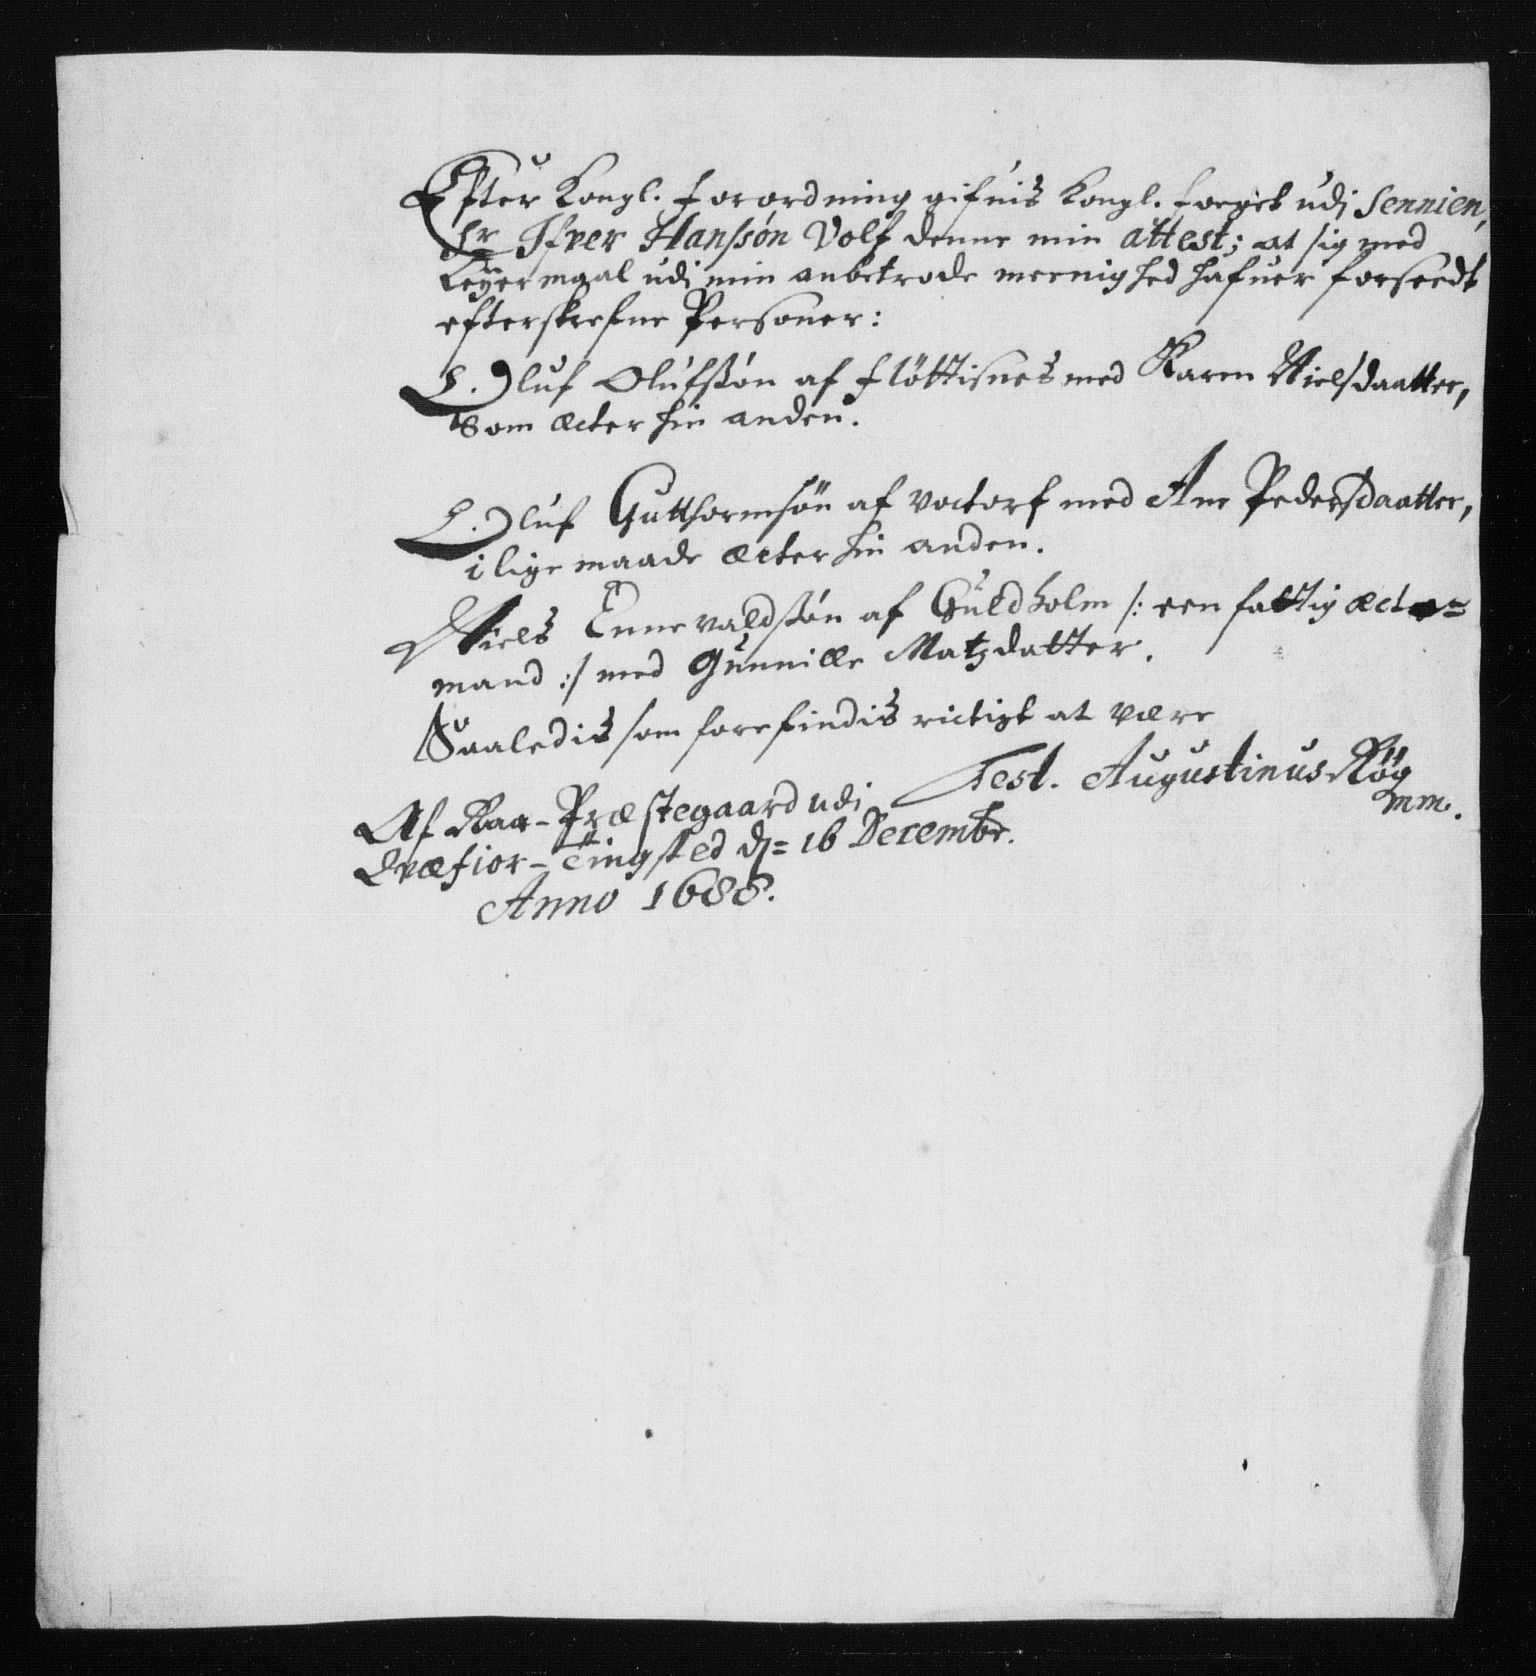 Efter Kongl. forordning gifuis Kongl. foeget udj Sennien,
Hr Ifver Hanssøn Volf denne min attest; at sig med
Leyermaal udi min anbetrode meenighed hafuer forseedt
efterskrefne Personer:
Oluf Olufssøn af fløttisnes med Karen Nielsdaatter,
Som ecter hin anden.
Oluf Gutthormsøn af Voctorf med Ane Pedersdaatter,
i lige maade ecter hin anden.
Niels Ennevaldssøn af Guldholm /: een fattig ecte=
mand :/ med Gunnille Matzdatter.
Saaledis som forefindis rictigt at være
Test. Augustinus Røg
mm.
Af Raa-Præstegaard udi
Qvæfior-Tingsted dj= 16 Decembr.
Anno 1688.